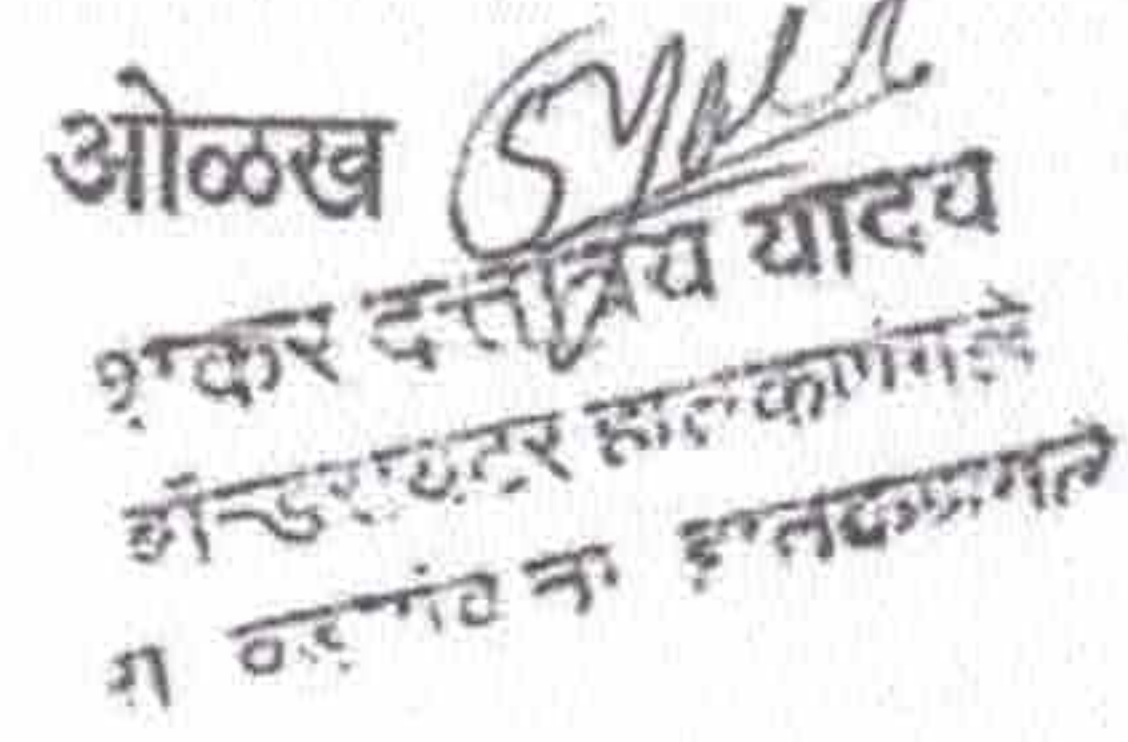 ओळख
शंकर दत्तात्रय यादव
बॉन्डरायटर हातकणंगले
ता हातकणंगले